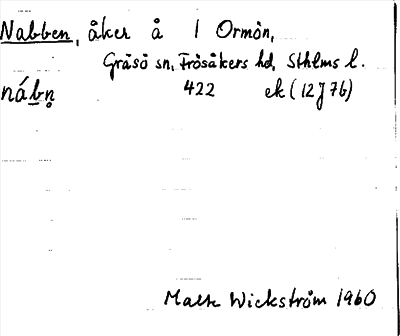 Nabben, åker å 1 Ormön,
Gräsö sn, Frösåkers hd, Sthlms l.
nábn̥ 422 ek (12J7b)
Malte Wickström 1960